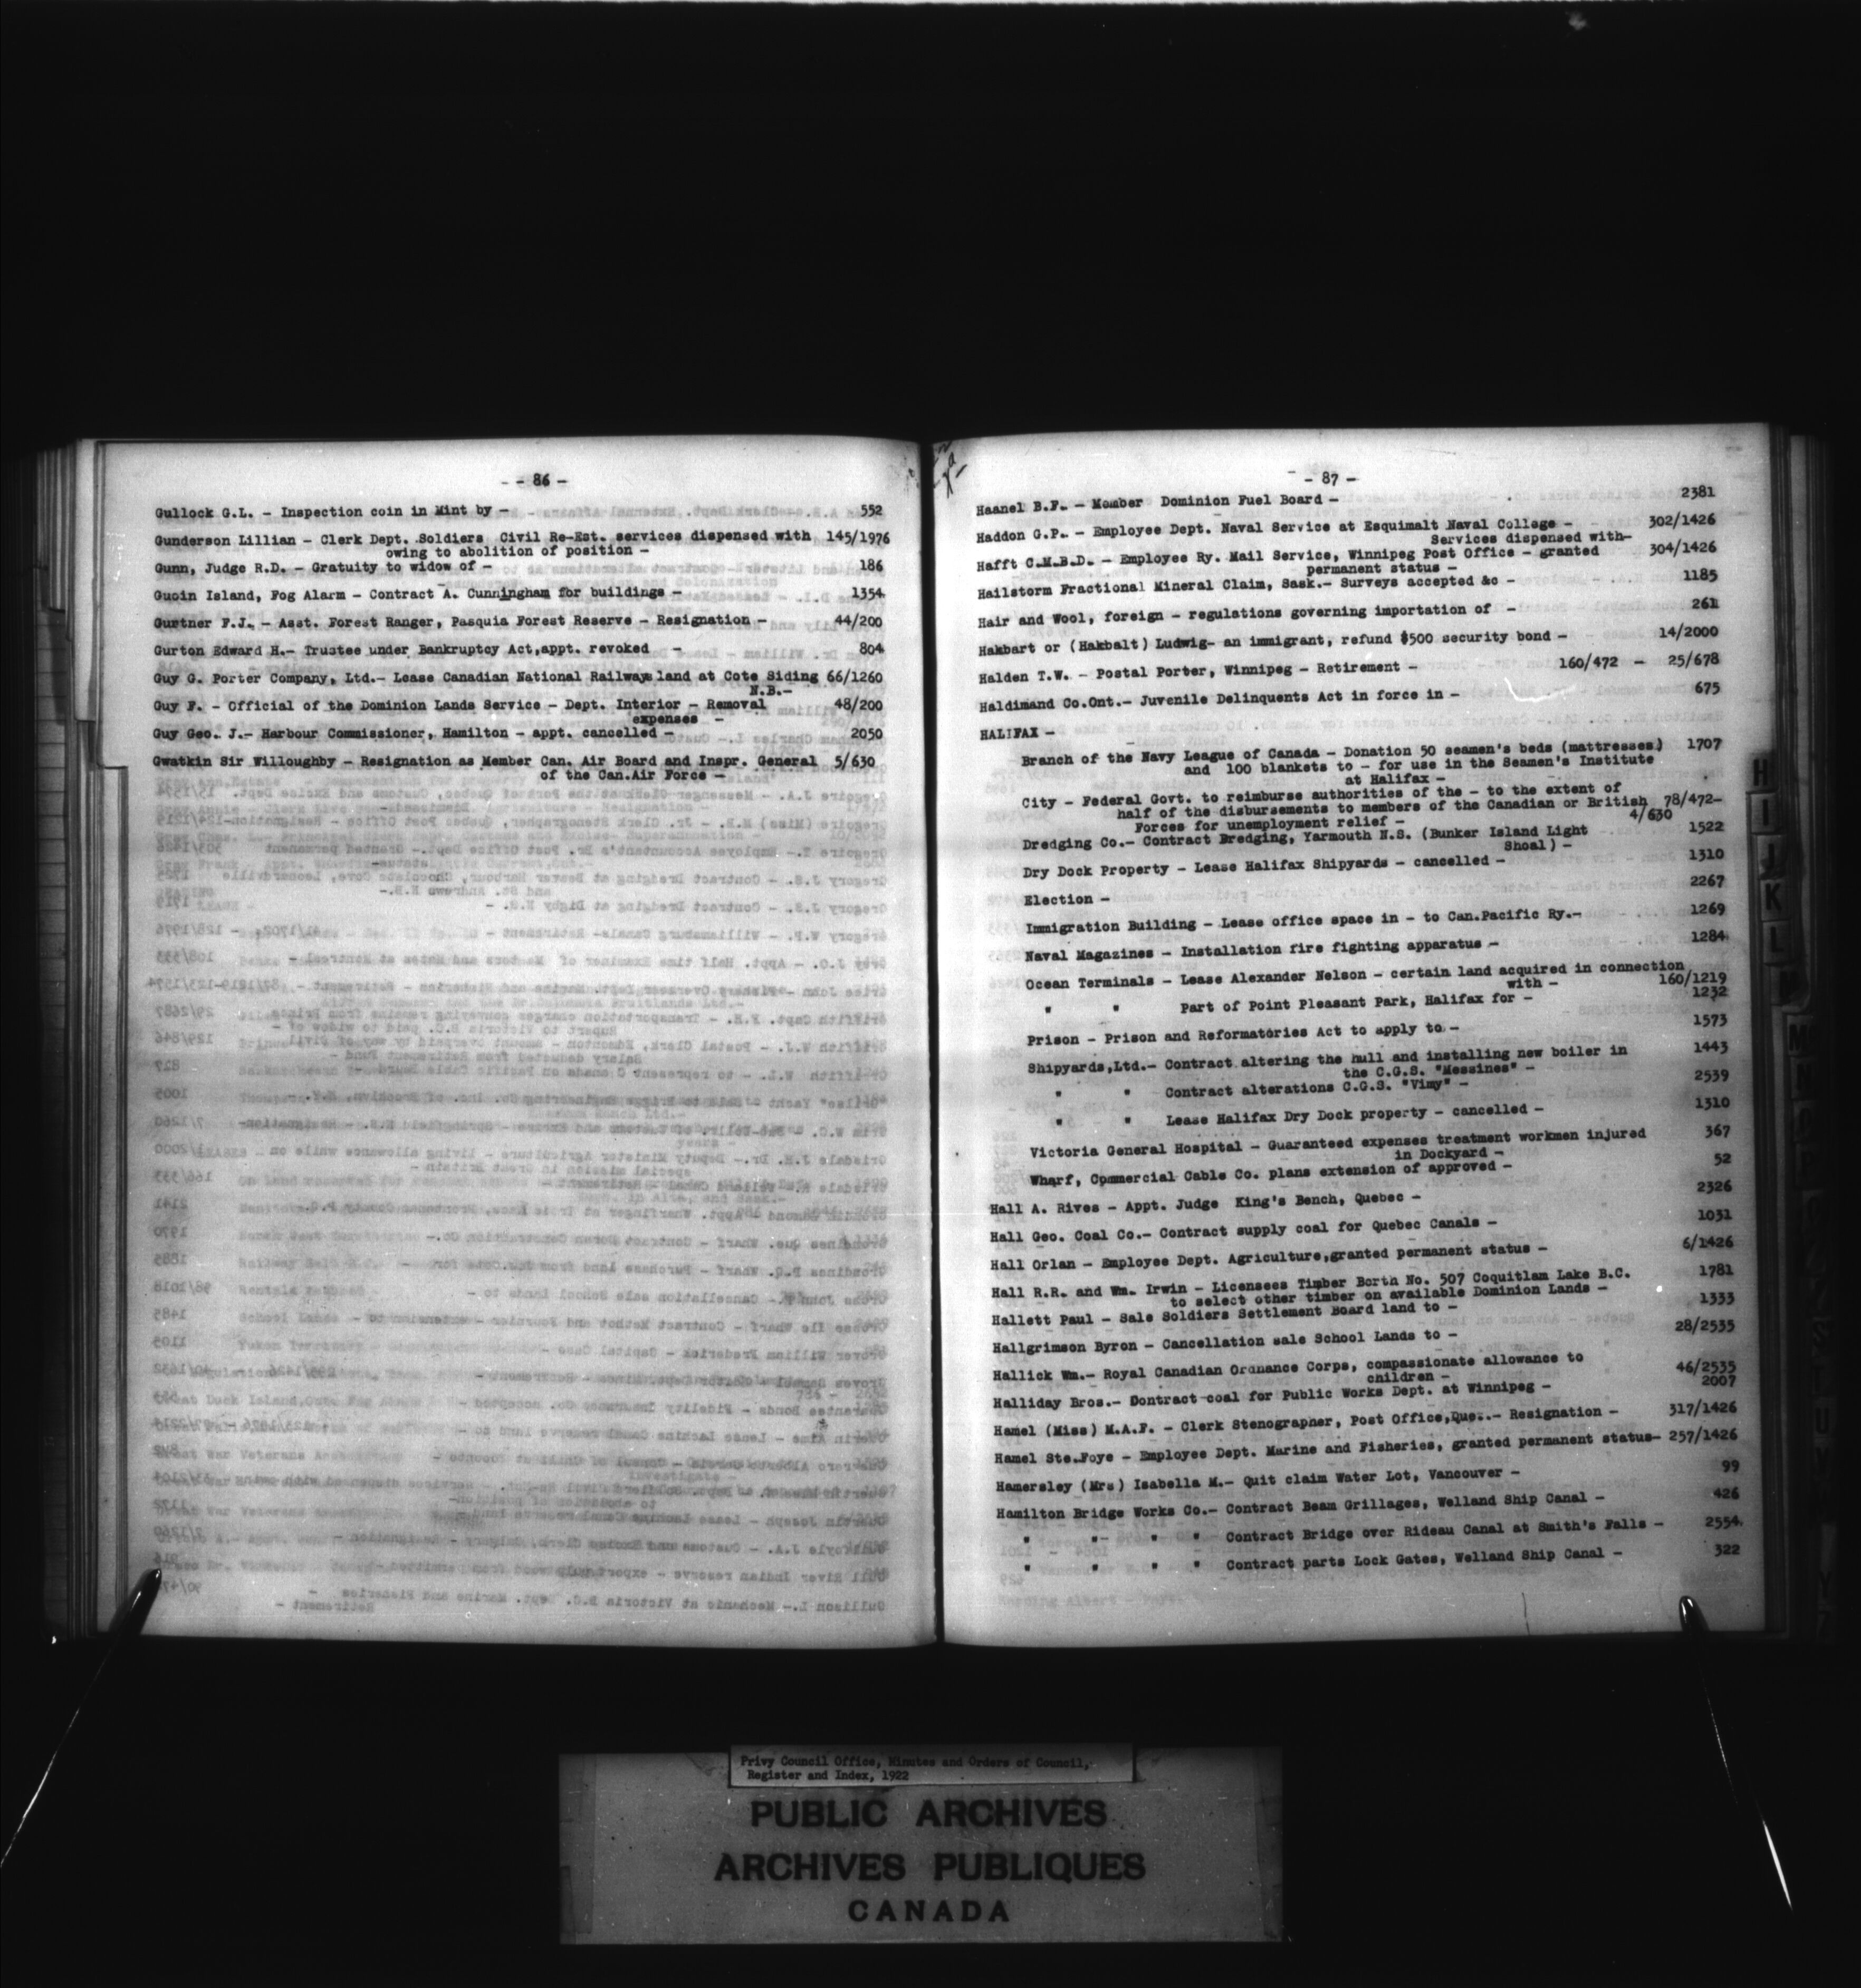 - 86 -
Gullock G.L. - Inspection coin in Mint by - 552
Gunderson Lillian - Clerk Dept. Soldiers Civil Re-Est. services dispensed with 145/1976
owing to abolition of position -
Gunn, Judge R.D. - Gratuity to widow of - 186
Guoin Island, Fog Alarm - Contract A. Cunningham for buildings - 1354
Gurtner F.J. - Asst. Forest Ranger, Pasquia Forest Reserve - Resignation - 44/200
Gurton Edward H.- Trustee under Bankruptcy Act,appt. revoked - 804
Guy G. Porter Company, Ltd.- Lease Canadian National Railways land at Cote Siding 66/1260
N.B.-
Guy F. - Official of the Dominion Lands Service - Dept. Interior - Removal 48/200
expenses -
Guy Geo. J.- Harbour Commissioner, Hamilton - appt. cancelled - 2050
Gwatkin Sir Willoughby - Resignation as Member Can. Air Board and Inspr. General 5/630
of the Can.Air Force -
- 87 -
Haanel B.F. - Member Dominion Fuel Board - 2381
Haddon G.P. - Employee Dept. Naval Service at Esquimalt Naval College - 302/1426
Services dispensed with-
Hafft C.M.B.D. - Employee Ry. Mail Service, Winnipeg Post Office - granted 304/1426
permanent status -
Hailstorm Fractional Mineral Claim, Sask.- Surveys accepted &c - 1185
Hair and Wool, foreign - regulations governing importation of - 261
Hakbart or (Hakbalt) Ludwig- an immigrant, refund $500 security bond - 14/2000
Halden T.W. - Postal Porter, Winnipeg - Retirement - 160/472 - 25/678
Haldimand Co.Ont.- Juvenile Delinquents Act in force in - 675
HALIFAX -
Branch of the Navy League of Canada - Donation 50 seamen's beds (mattresses) 1707
and 100 blankets to - for use in the Seamen's Institute
at Halifax -
City - Federal Govt. to reimburse authorities of the - to the extent of
half of the disbursements to members of the Canadian or British 78/472-
Forces for unemployment relief - 4/630
Dredging Co.- Contract Dredging, Yarmouth N.S. (Bunker Island Light 1522
Shoal) -
Dry Dock Property - Lease Halifax Shipyards - cancelled - 1310
Election - 2267
Immigration Building - Lease office space in - to Can.Pacific Ry.- 1269
Naval Magazines - Installation fire fighting apparatus - 1284
Ocean Terminals - Lease Alexander Nelson - certain land acquired in connection
with - 160/1219
" " Part of Point Pleasant Park, Halifax for - 1232
Prison - Prison and Reformatories Act to apply to - 1573
Shipyards,Ltd.- Contract altering the hull and installing new boiler in 1443
the C.G.S. "Messines" -
" " Contract alterations C.G.S. "Vimy" - 2539
" " Lease Halifax Dry Dock property - cancelled - 1310
Victoria General Hospital - Guaranteed expenses treatment workmen injured 367
in Dockyard -
Wharf, Commercial Cable Co. plans extension of approved - 52
Hall A. Rives - Appt. Judge King's Bench, Quebec - 2326
Hall Geo. Coal Co.- Contract supply coal for Quebec Canals - 1031
Hall Orlan - Employee Dept. Agriculture,granted permanent status - 6/1426
Hall R.R. and Wm. Irwin - Licensees Timber Berth No. 507 Coquitlam Lake B.C. 1781
to select other timber on available Dominion Lands -
Hallett Paul - Sale Soldiers Settlement Board land to - 1333
Hallgrimson Byron - Cancellation sale School Lands to - 28/2535
Hallick Wm.- Royal Canadian Ordnance Corps, compassionate allowance to
children - 46/2535
Halliday Bros.- Contract coal for Public Works Dept. at Winnipeg - 2007
Hamel (Miss) M.A.F. - Clerk Stenographer, Post Office,Que..- Resignation - 317/1426
Hamel Ste.Foye - Employee Dept. Marine and Fisheries, granted permanent status- 257/1426
Hamersley (Mrs) Isabella M.- Quit claim Water Lot, Vancouver - 99
Hamilton Bridge Works Co.- Contract Beam Grillages, Welland Ship Canal - 426
" " " " Contract Bridge over Rideau Canal at Smith's Falls - 2554
" " " " Contract parts Lock Gates, Welland Ship Canal - 322
H
I
J
K
L
Privy Council Office, Minutes and Orders of Council,
Register and Index, 1922
PUBLIC ARCHIVES
ARCHIVES PUBLIQUES
CANADA